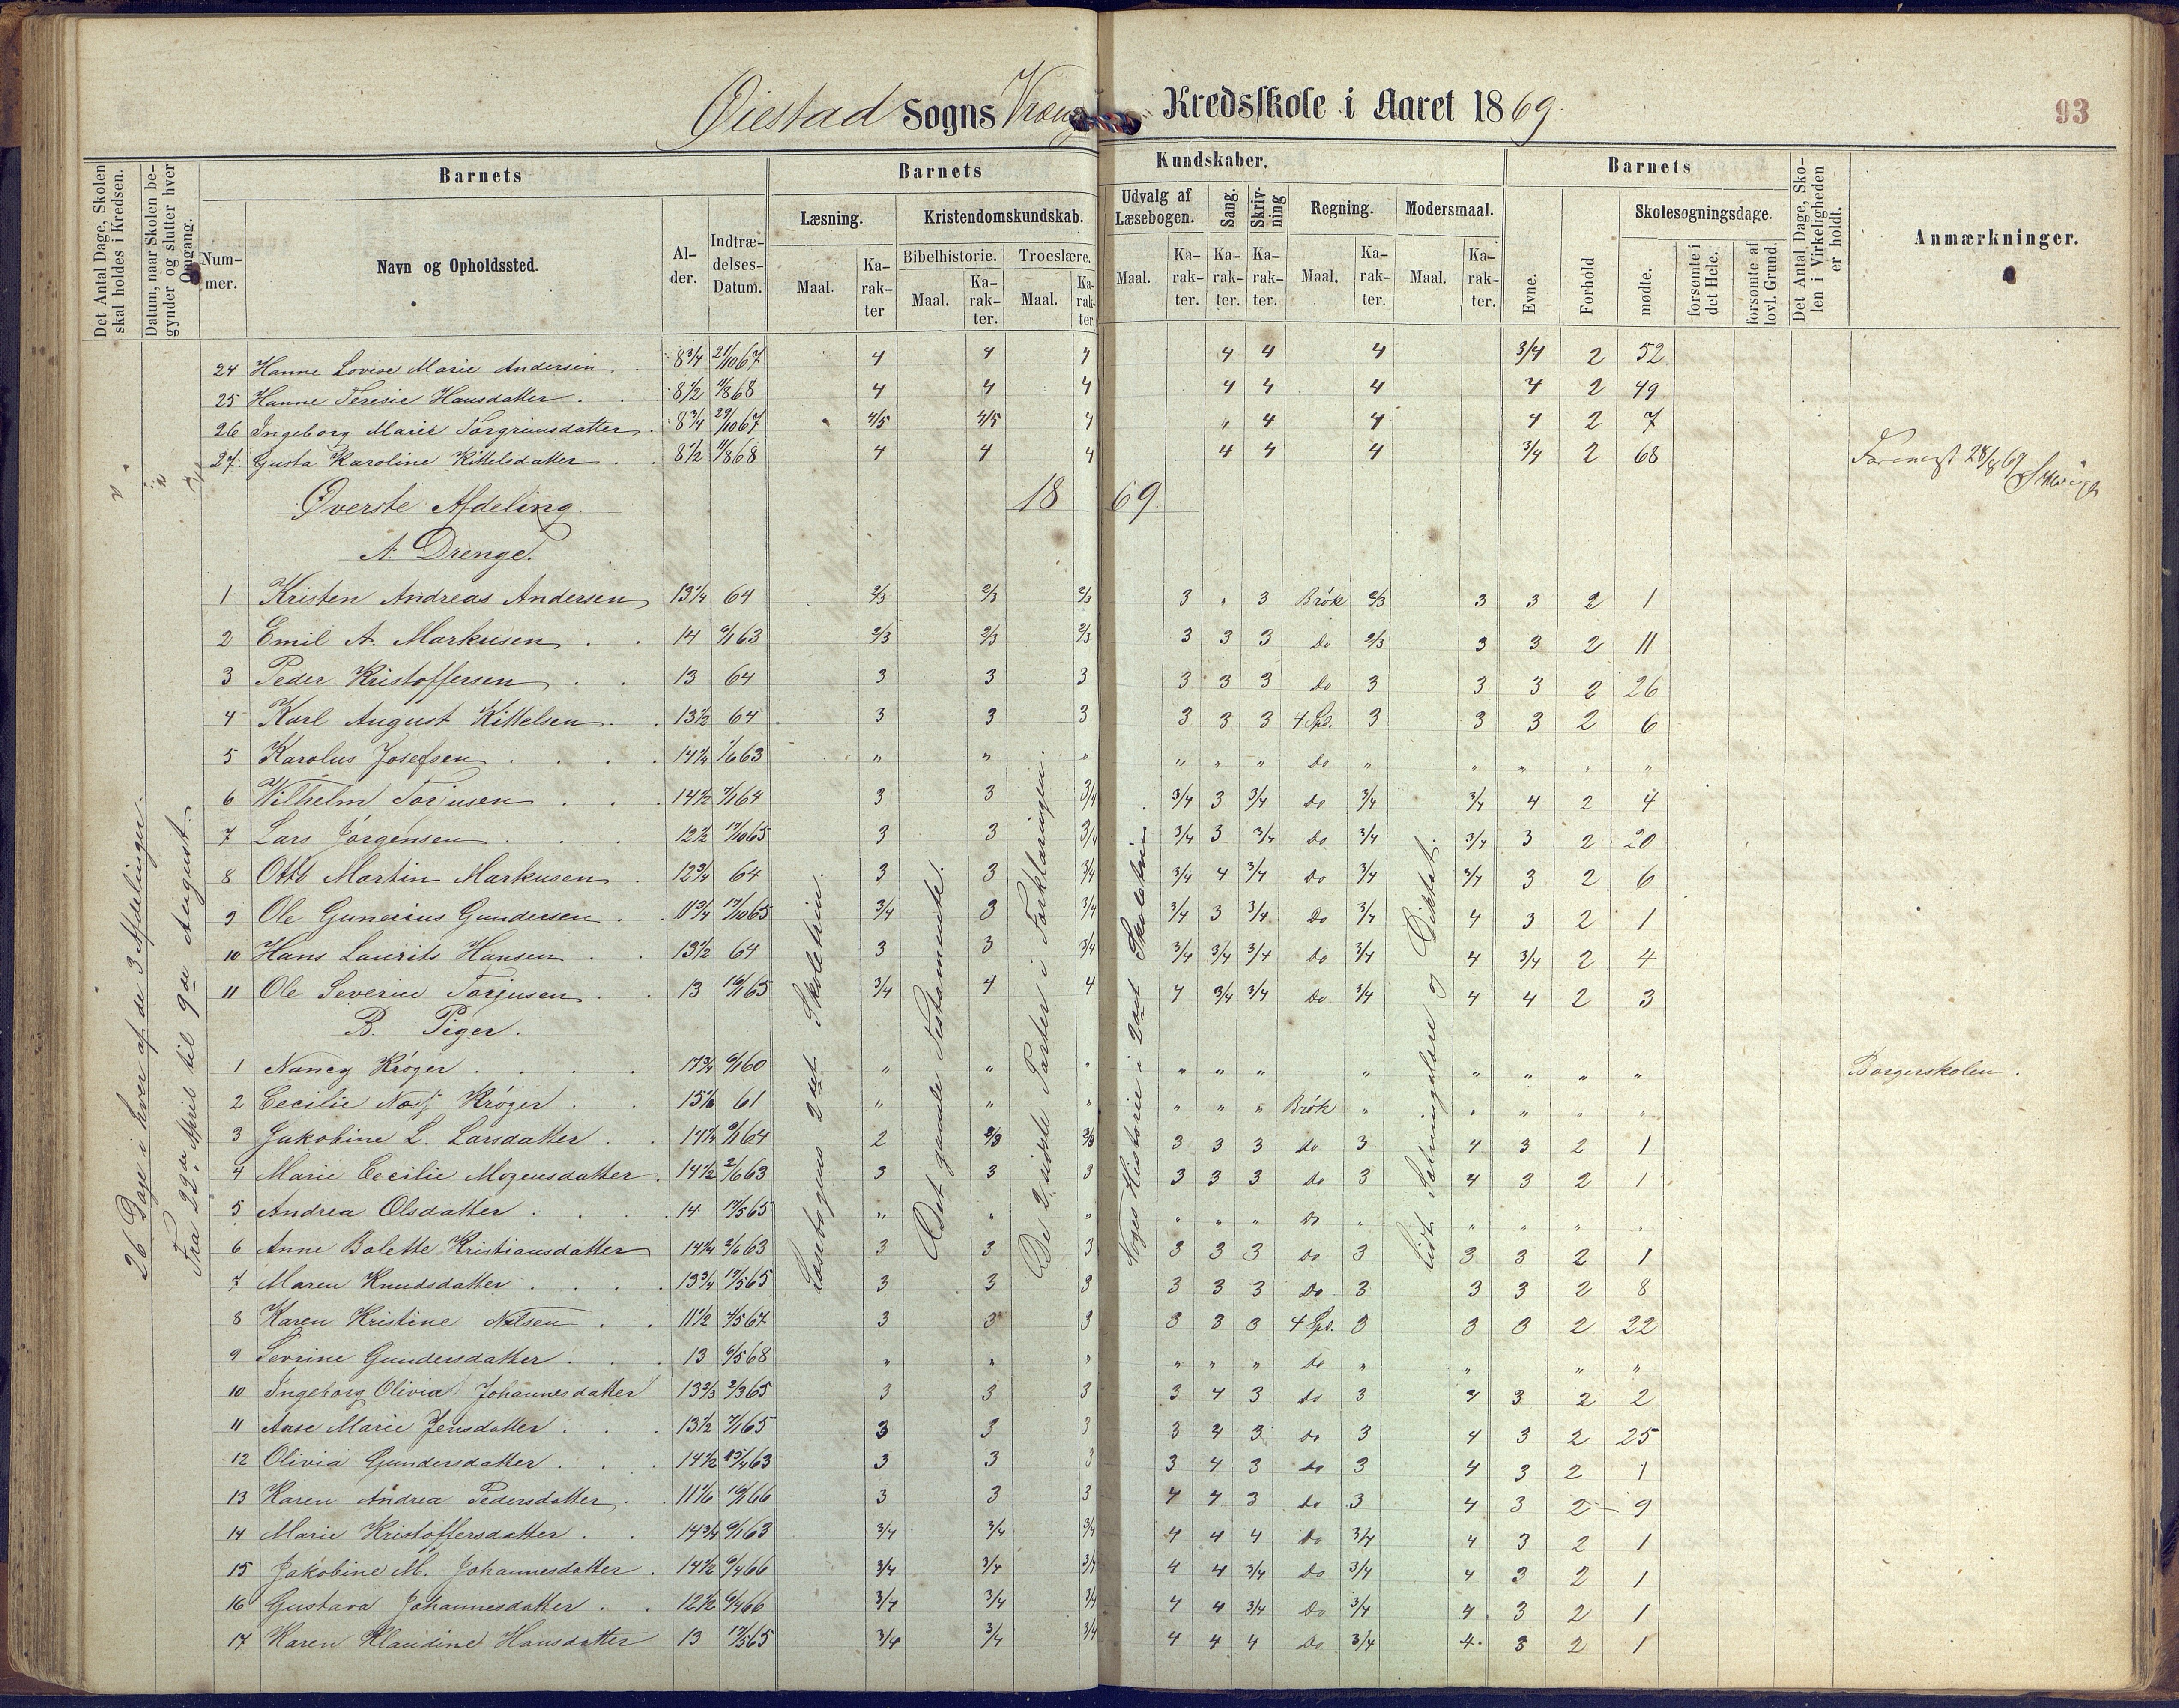 Øiestad Sogns Kredsskole i Aaret 1869.
93
Det Antal Dage, Skolen skal holdes i Kredsen.
Datum, naar Skolen begynder og slutter hver Omgang.
Barnets
Barnets Kundskaber.
Barnets
Det Antal Dage, Skolen i Virkeligheden er holdt.
Anmærkninger.
Nummer.
Navn og Opholdssted.
Alder.
Indtrædelses-Datum.
Læsning.
Kristendomskundskab.
Udvalg af Læsebogen.
Sang.
Skrivning
Regning.
Modersmaal.
Evne.
Forhold
Skolesøgningsdage.
Bibelhistorie. Troeslære.
Maal. Karakter Maal. Karakter. Maal. Karakter. Maal. Karakter. Karakter. Karakter. Maal. Karakter. Maal. Karakter.
mødte. forsømte i det Hele. forsømte af lovl. Grund.
24 Hanne Lovise Marie Andersen 8 3/4 21/10 67 4 4 4 4 4 4 3/4 2 52
25 Hanne Teresie Hansdatter 8 1/2 11/8 68 4 4 4 4 4 4 4 2 49
26 Ingeborg Marie Torgrimsdatter 8 3/4 29/10 67 4/5 4/5 4 " 4 4 4 2 7
27. Gusta Karoline Kittelsdatter 8 1/2 11/8 68 4 4 4 4 4 4 3/4 2 68
Øverste Afdeling. 1869.
A. Drenge.
1 Kristen Andreas Andersen 13 1/4 64 2/3 2/3 2/3 3 " 3 Brøk 2/3 3 3 2 1
2 Emil A. Markusen 14 9/1 63 2/3 2/3 2/3 3 3 3 Do 2/3 3 3 2 11
3 Peder Kristoffersen 13 64 3 3 3 3 3 3 Do 3 3 3 2 26
4 Karl August Kittelsen 13 1/2 64 3 3 3 3 3 3 4 Spd. 3 3 3 2 6
5 Karolus Josefsen 14 1/4 1/6 63 " " " " " " Do " " " " "
6 Vilhelm Torjusen 14 1/2 7/1 64 3 3 3/4 3/4 3 3/4 Do 3/4 3/4 4 2 4
7 Lars Jørgensen 12 1/2 17/10 65 3 3 3/4 3/4 3 3/4 Do 3/4 3/4 3 2 20
8 Otto Martin Markusen 12 3/4 64 3 3 3/4 3/4 4 3/4 Do 3/4 3/4 3 2 6
9 Ole Gunerius Gundersen 11 3/4 17/10 65 3/4 3 3/4 3/4 3 3/4 Do 3/4 4 3 2 1
10 Hans Laurits Hansen 13 1/2 64 3 3 3/4 3/4 3/4 3/4 Do 3/4 4 3/4 2 4
11 Ole Severin Torjusen 13 16/1 65 3/4 4 4 4 3/4 3/4 Do 3/4 4 4 2 3
B. Piger.
1 Nancy Krøger 17 3/4 9/1 60 " " " " " " " " " " " Borgerskolen.
2 Cecilie Krøger 15 1/6 61 " " " " " " Brøk " " " " "
3 Jakobine L. Larsdatter 14 1/4 9/1 64 2 2/3 2/3 3 3 3 do 3 4 3 2 1
4 Marie Cecilie Mogensdatter 14 1/2 2/6 63 3 3 3 3 3 3 Do 3 4 3 2 1
5 Andrea Olsdatter 14 17/5 65 " " " " " " Do " " " " "
6 Anne Bolette Kristiansdatter 14 1/4 2/6 63 3 3 3 3 3 3 Do 3 3 3 2 1
7 Maren Knudsdatter 13 3/4 17/5 65 3 3 3 3 3 3 Do 3 3 3 2 8
8 Karen Kristine Nilsen 11 1/2 4/5 67 3 3 3 3 3 3 4 Spd. 3 3 3 2 22
9 Sevrine Gundersdatter 13 6/5 68 " " " " " " do " " " "
10 Ingeborg Olivia Johannesdatter 13 2/3 2/3 65 3 3 3 3 4 3 do 3 4 3 2 2
11 Aase Marie Jensdatter 13 1/2 7/1 65 3 3 3 3 4 3 Do 3 4 3 2 25
12 Olivia Gundersdatter 14 1/2 15/4 63 3 3 3 3 4 3 do 3 4 3 2 1
13 Karen Andrea Pedersdatter 11 1/6 16/1 66 3 3 3 4 4 3 do 3 4 3 2 9
14 Marie Kristoffersdatter 14 3/4 9/1 63 3/4 3/4 3/4 4 4 4 Do 3/4 4 3 2 1
15 Jakobine M. Johannesdatter 14 1/2 9/4 66 3/4 3/4 3/4 4 4 3/4 Do 3/4 4 3 2 1
16 Gustava Johannesdatter 12 1/2 9/4 66 3/4 3/4 3/4 4 4 3/4 Do 3/4 4 3 2 1
17 Karen Klaudine Hansdatter 13 17/5 65 3/4 3/4 3/4 4 4 4 Do 3/4 4 3 2 1
26 Dage i hver af de 3 Afdelinger.
Fra 22de April til 9de August
Læsebogens 2det Skoletrin.
Det gamle Testamente.
De 2 sidste Parter i Forklaringen.
Norges Historie i 2det Skoletrin
Lidt Sætningslære og Diktat.